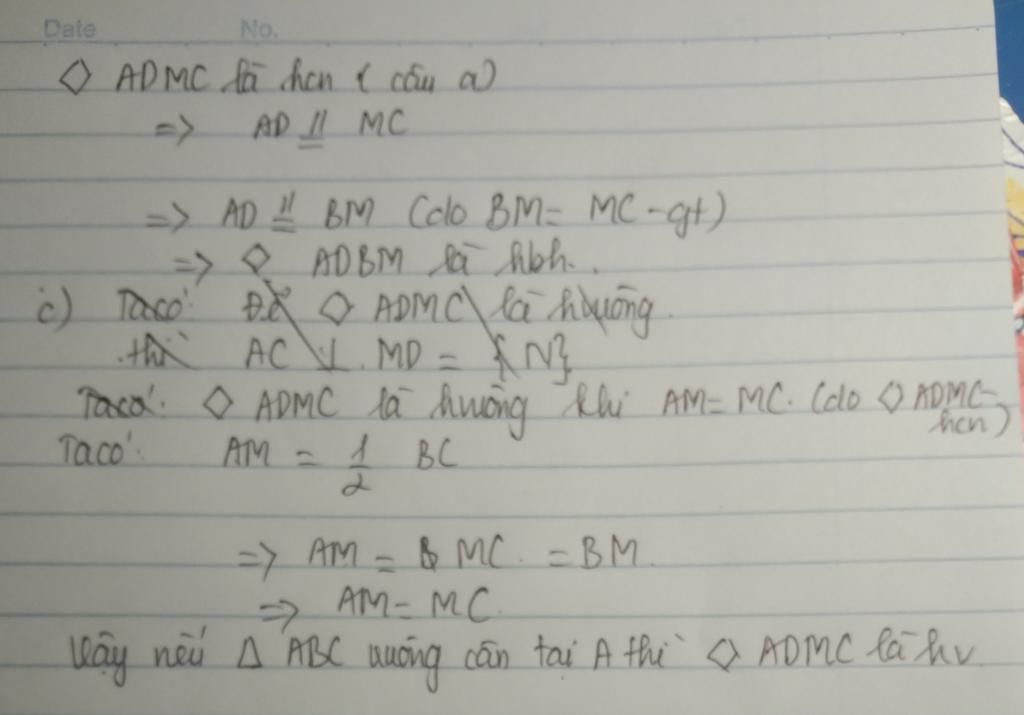 Date No.
◇ ADMC là hcn (câu a)
=> AD // = MC
=> AD // = BM (do BM = MC - gt)
=> ◇ ADBM là hbh.
c) Ta có: Để ◇ ADMC là hvuông.
thì AC ⊥ MD = {N}
Ta có: ◇ ADMC là hvuông khi AM = MC. (do ◇ ADMC-
hcn)
Ta có: AM = 1/2 BC
=> AM = MC = BM.
=> AM = MC.
Vậy nếu Δ ABC vuông cân tại A thì ◇ ADMC là hv